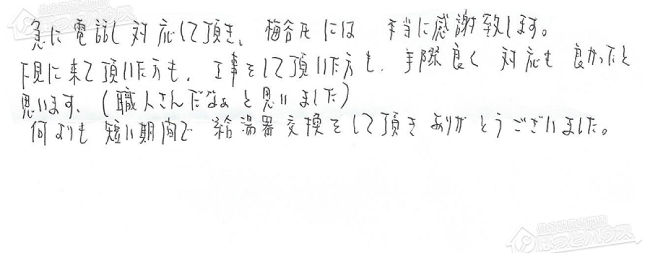 急に電話し対応して頂き、梅谷氏には 本当に感謝致します。
下見に来て頂いた方も、工事をして頂いた方も、手際良く 対応も良かったと
思います。(職人さんだなぁと思いました)
何よりも短い期間で給湯器交換をして頂きありがとうございました。